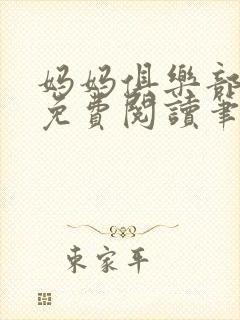 妈妈俱樂部
免費閱讀筆
東家平